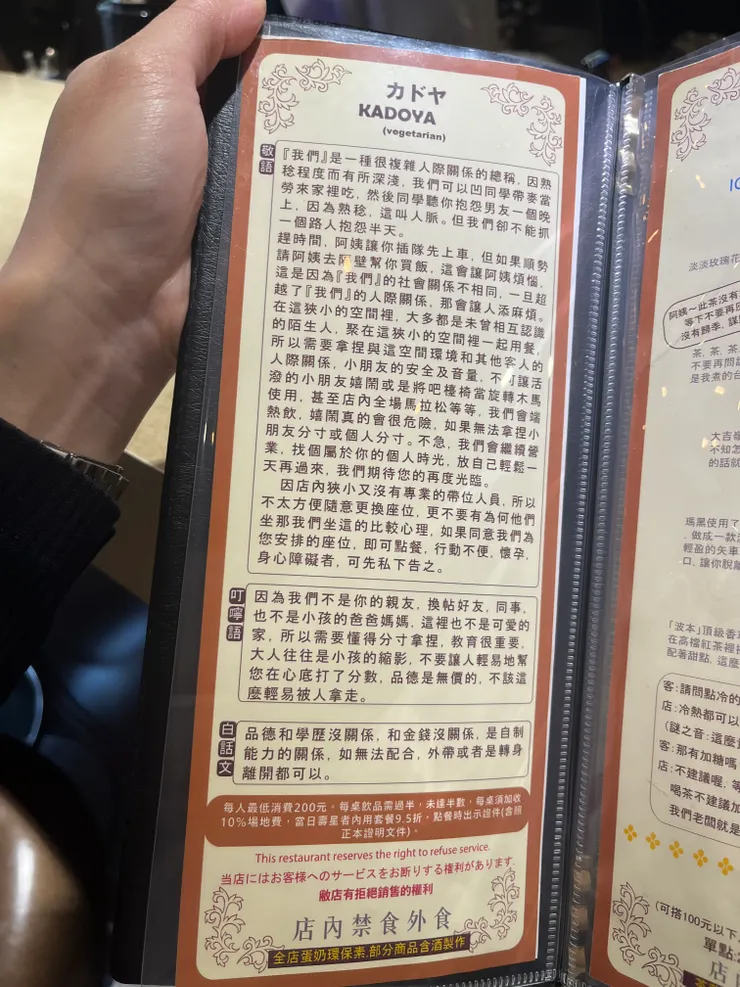 カドヤ
KADOYA
(vegetarian)
敬語
『我們』是一種很複雜人際關係的總稱，因熟
稔程度而有所深淺，我們可以凹同學帶麥當
勞來家裡吃，然後同學聽你抱怨男友一個晚
上，因為熟稔，這叫人脈。但我們卻不能抓
一個路人抱怨半天。
趕時間，阿姨讓你插隊先上車，但如果順勢
請阿姨去隔壁幫你買飯，這會讓阿姨煩惱，
這是因為『我們』的社會關係不相同，一旦超
越了『我們』的人際關係，那會讓人添麻煩。
在這狹小的空間裡，大多都是未曾相互認識
的陌生人，聚在這狹小的空間裡一起用餐，
所以需要拿捏與這空間環境和其他客人的
人際關係，小朋友的安全及音量，不可讓活
潑的小朋友嬉鬧或是將吧檯椅當旋轉木馬
使用，甚至店內全場馬拉松等等，我們會端
熱飲，嬉鬧真的會很危險，如果無法拿捏小
朋友分寸或個人分寸。不急，我們會繼續營
業，找個屬於你的個人時光，放自己輕鬆一
天再過來，我們期待您的再度光臨。
因店內狹小又沒有專業的帶位人員，所以
不太方便隨意更換座位，更不要有為何他們
坐那我們坐這的比較心理，如果同意我們為
您安排的座位，即可點餐，行動不便，懷孕，
身心障礙者，可先私下告之。
叮嚀語
因為我們不是你的親友，換帖好友，同事，
也不是小孩的爸爸媽媽，這裡也不是可愛的
家，所以需要懂得分寸拿捏，教育很重要，
大人往往是小孩的縮影，不要讓人輕易地幫
您在心底打了分數，品德是無價的，不該這
麼輕易被人拿走。
白話文
品德和學歷沒關係，和金錢沒關係，是自制
能力的關係，如無法配合，外帶或者是轉身
離開都可以。
每人最低消費200元。每桌飲品需過半，未達半數，每桌須加收
10％場地費，當日壽星者內用套餐9.5折，點餐時出示證件(含照
正本證明文件)。
This restaurant reserves the right to refuse service.
当店にはお客様へのサービスをお断りする権利があります.
敝店有拒絕銷售的權利
店內禁食外食
全店蛋奶環保素.部分商品含酒製作
淡淡玫瑰花
阿姨～此茶沒有
等下不要再
沒有歸季，謀
茶，茶，茶
不要再問
是我煮的台
大吉嶺
不知怎
的話就
瑪黑使用了
，做成一款
輕盈的矢車
口，讓你脫離
「波本」頂級香
在高檔紅茶裡
配著甜點，這
客:請問點冷的
店:冷熱都可以
(謎之音:這麼
客:那有加糖嗎
店:不建議喔，等
喝茶不建議加
我們老闆就是
(可搭100元以下
單點
店